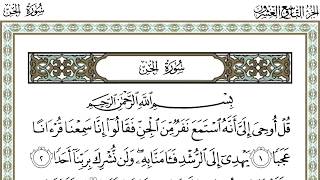 سُورَةُ الجِنِّ الجُزْءُ التَّاسِعُ وَالعِشْرُونَ
سُورَةُ الجِنِّ
بِسْمِ اللَّهِ الرَّحْمَٰنِ الرَّحِيمِ
قُلْ أُوحِىَ إِلَىَّ أَنَّهُ ٱسْتَمَعَ نَفَرٌ مِّنَ ٱلْجِنِّ فَقَالُوٓا۟ إِنَّا سَمِعْنَا قُرْءَانًا
عَجَبًا ١ يَهْدِىٓ إِلَى ٱلرُّشْدِ فَـَٔامَنَّا بِهِۦ وَلَن نُّشْرِكَ بِرَبِّنَآ أَحَدًا ٢